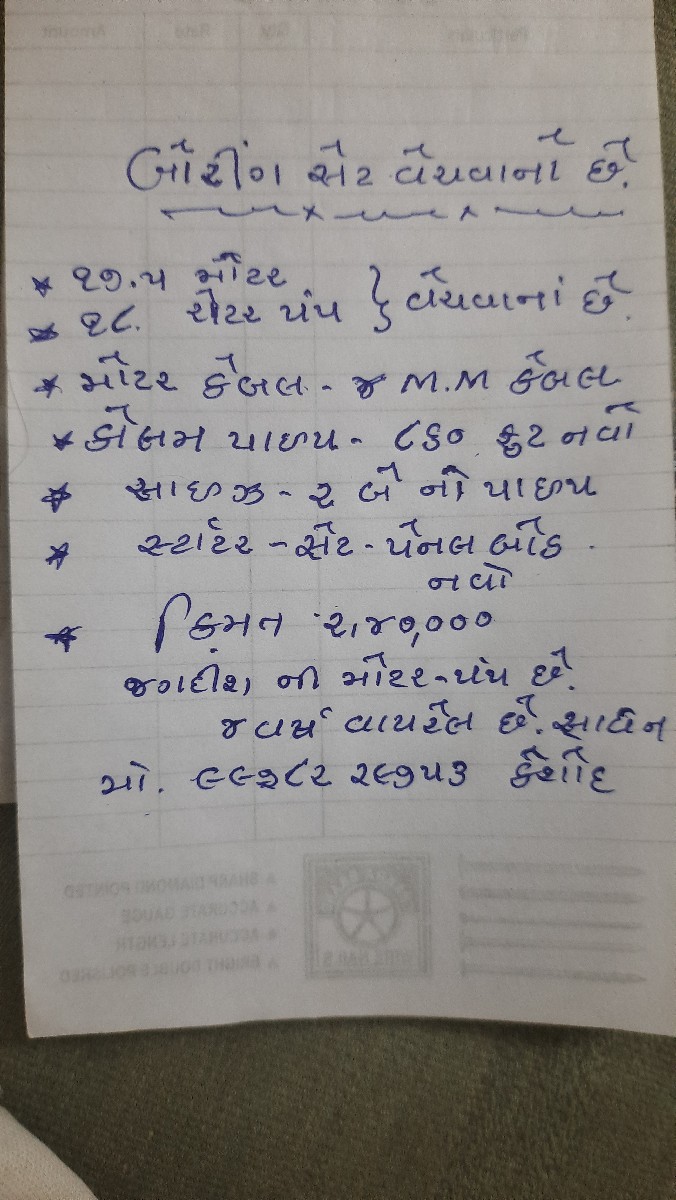 બોરીંગ સેટ વેચવાનો છે.
* ૧૭.૫ મોટર
* ૧૮. રોટર પંપ } વેચવાનાં છે.
* મોટર કેબલ - ૪ M.M કેબલ
* કોલમ પાઇપ - ૮૬૦ ફુટ નવો
* સાઇઝ - ૨ બે ની પાઇપ
* સ્ટાર્ટર - સેટ - પેનલ બોર્ડ.
નવો
* કિંમત ૨,૪૦,૦૦૦
જગદીશ ની મોટર - પંપ છે.
૪ વર્ષ વાપરેલ છે.
મો. ૯૯૭૮૨ ૨૯૭૫૩ કેશોદ
SHARP DIAMOND POINTED
ACCURATE GAUGE
ACCURATE LENGTH
BRIGHT DOUBLE POLISHED